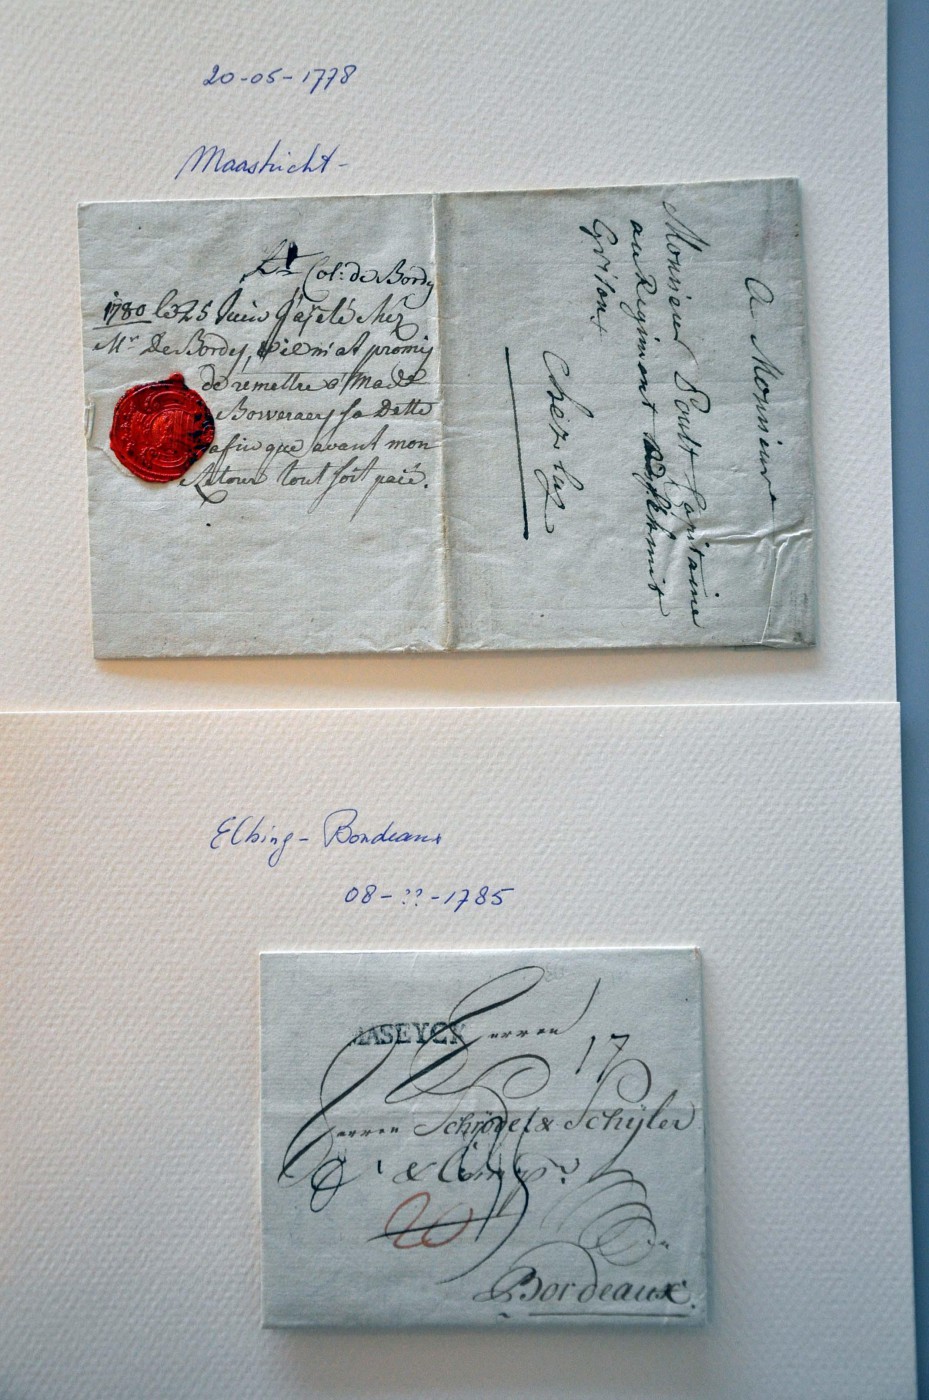 20-05-1778
Maastricht-
Lt Col: de Bordes
1780 le 25 Juin J'aj été chez
Mr De Bordes, il m'at promis
de remettre a Made
sa Dette
afin que avant mon
Retour tout soit paié.
A Monsieur
Monsieur Capitaine
au Regiment Schmit
Grisons
Chez luy
Elbing - Bordeaux
08-??-1785
MASEYCK
Herren
17
Herren Schröder & Schÿler
& Comp:
20
Bordeaux.